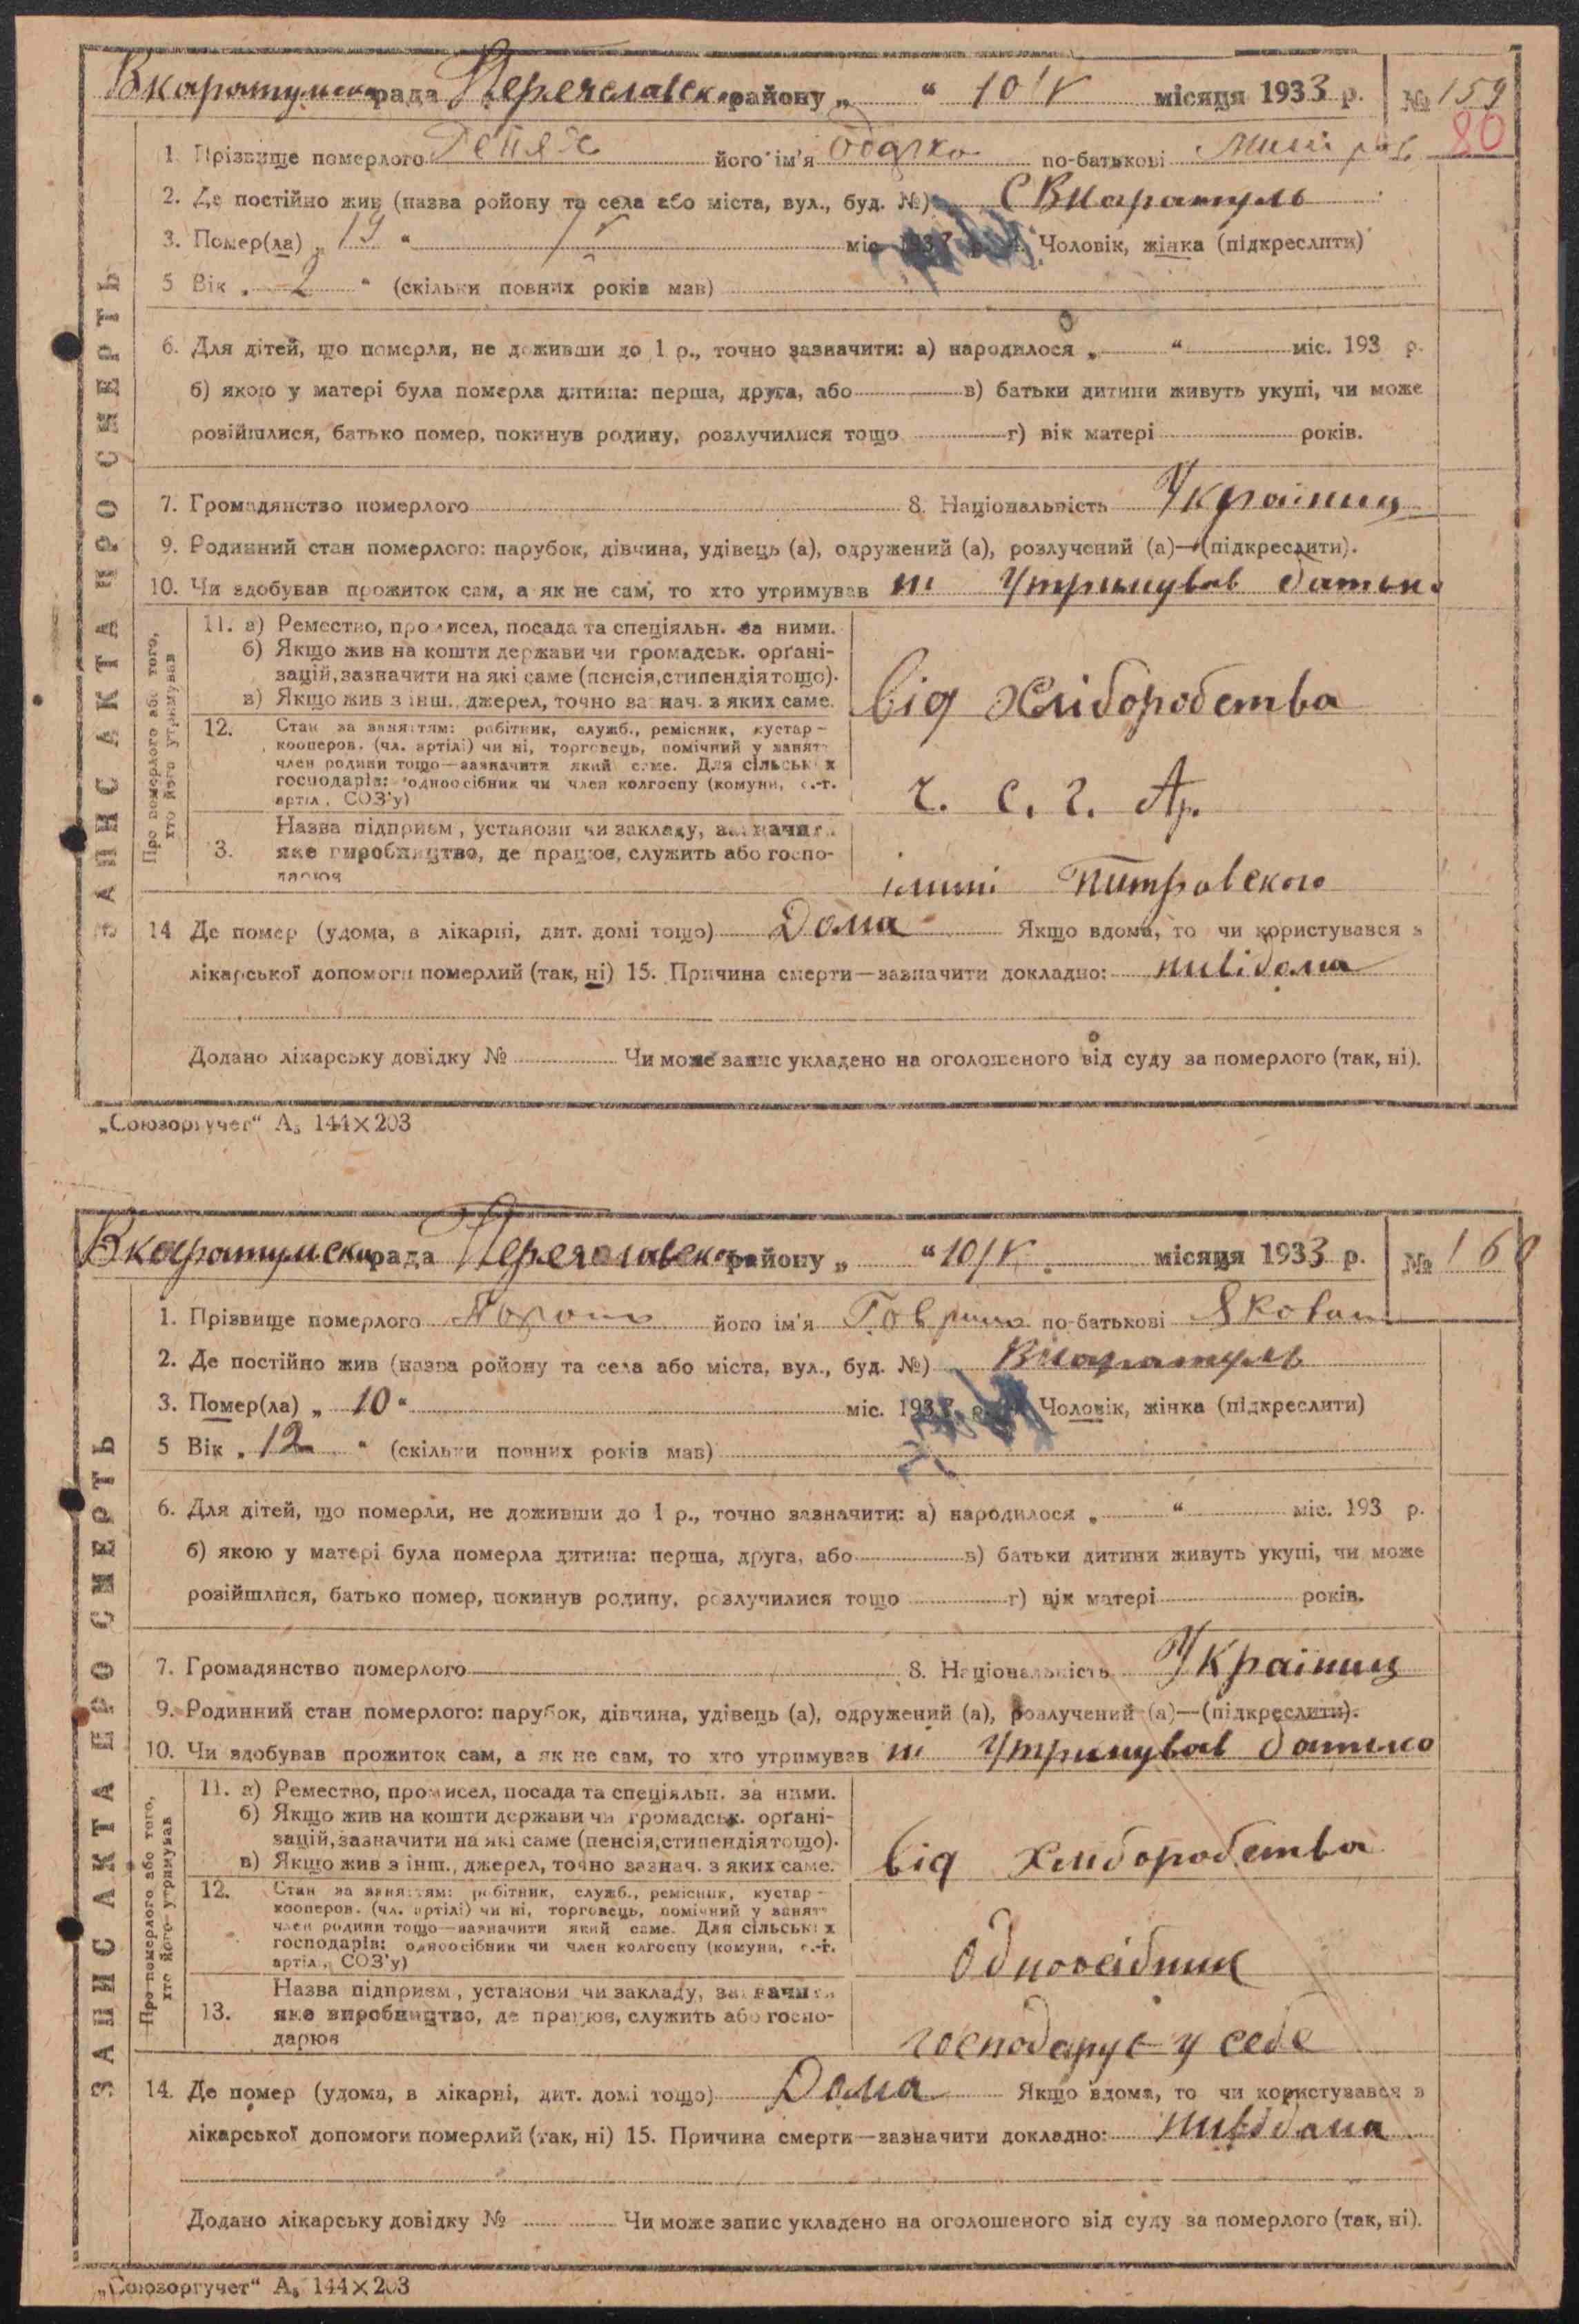 Вкаратульска рада Переяславськ району „ “ 10/V місяця 1933 р. № 159
80
1. Прізвище померлого його ім'я Одарка по-батькові
2. Де постійно жив (назва ройону та села або міста, вул., буд. №) С Вкаратуль
3. Помер(ла) „ “ міс. 193 р. 4. Чоловік, жінка (підкреслити)
5 Вік „ 2 “ (скільки повних років мав)
6. Для дітей, що померли, не доживши до 1 р., точно зазначити: а) народилося „ “ міс. 193 р.
б) якою у матері була померла дитина: перша, друга, або в) батьки дитини живуть укупі, чи може
розійшлися, батько помер, покинув родину, розлучилися тощо г) вік матері років.
7. Громадянство померлого 8. Національність Україниц
9. Родинний стан померлого: парубок, дівчина, удівець (а), одружений (а), розлучений (а)—(підкреслити).
10. Чи здобував прожиток сам, а як не сам, то хто утримував ні Утримував батько
ЗАПИС АКТА ПРО СМЕРТЬ
Про померлого або того, хто його утримував
11. а) Ремество, промисел, посада та спеціяльн. за ними.
б) Якщо жив на кошти держави чи громадськ. орґані-
зацій, зазначити на які саме (пенсія, стипендія тощо).
в) Якщо жив з інш. джерел, точно зазнач. з яких саме.
від хліборобства
12. Стан за заняттям: робітник, служб., ремісник, кустар-
кооперов. (чл. артілі) чи ні, торговець, помічний у занят.
член родини тощо—зазначити який саме. Для сільських
господарів: одноосібник чи член колгоспу (комуни, с.-г.
артіл., СОЗ'у)
ч. с. г. Ар.
13. Назва підприєм., установи чи закладу, зазначити
яке виробництво, де працює, служить або госпо-
дарює
імині Питровского
14 Де помер (удома, в лікарні, дит. домі тощо) Дома Якщо вдома, то чи користувався з
лікарської допомоги померлий (так, ні) 15. Причина смерти—зазначити докладно: нивідома
Додано лікарську довідку № Чи може запис укладено на оголошеного від суду за померлого (так, ні).
„Союзоргучет“ А₅ 144×203
Вкаратульска рада Переяславська району „ “ 10/V місяця 1933 р. № 160
1. Прізвище померлого його ім'я Гаврило по-батькові Якован
2. Де постійно жив (назва ройону та села або міста, вул., буд. №) Вкаратуль
3. Помер(ла) „ 10 “ міс. 193 р. 4. Чоловік, жінка (підкреслити)
5 Вік „ 12 “ (скільки повних років мав)
6. Для дітей, що померли, не доживши до 1 р., точно зазначити: а) народилося „ “ міс. 193 р.
б) якою у матері була померла дитина: перша, друга, або в) батьки дитини живуть укупі, чи може
розійшлися, батько помер, покинув родину, розлучилися тощо г) вік матері років.
7. Громадянство померлого 8. Національність Україниц
9. Родинний стан померлого: парубок, дівчина, удівець (а), одружений (а), розлучений (а)—(підкреслити).
10. Чи здобував прожиток сам, а як не сам, то хто утримував ні Утримував батько
ЗАПИС АКТА ПРО СМЕРТЬ
Про померлого або того, хто його утримував
11. а) Ремество, промисел, посада та спеціяльн. за ними.
б) Якщо жив на кошти держави чи громадськ. орґані-
зацій, зазначити на які саме (пенсія, стипендія тощо).
в) Якщо жив з інш., джерел, точно зазнач. з яких саме.
від хліборобства
12. Стан за заняттям: робітник, служб., ремісник, кустар-
кооперов. (чл. артілі) чи ні, торговець, помічний у занят.
член родини тощо—зазначити який саме. Для сільських
господарів: одноосібник чи член колгоспу (комуни, с.-г.
артіл., СОЗ'у)
Одноосібник
13. Назва підприєм., установи чи закладу, зазначити
яке виробництво, де працює, служить або госпо-
дарює
господарує у себе
14. Де помер (удома, в лікарні, дит. домі тощо) Дома Якщо вдома, то чи користувався з
лікарської допомоги померлий (так, ні) 15. Причина смерти—зазначити докладно: нивідома
Додано лікарську довідку № Чи може запис укладено на оголошеного від суду за померлого (так, ні).
„Союзоргучет“ А₅ 144×203